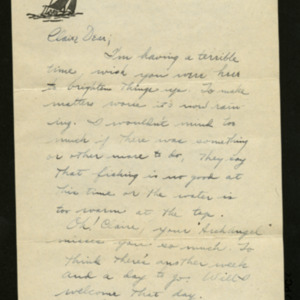 Claire Dear,
I'm having a terrible
time, wish you were here
to brighten things up. To make
matters worse it's now rain
ing. I wouldn't mind too
much if there was something
or other more to do, they say
that fishing is no good at
this time or the water is
too warm at the top.
Oh! Claire, your "Archangel"
misses you so much. To
think there's another week
and a day to go. Will I
welcome that day.